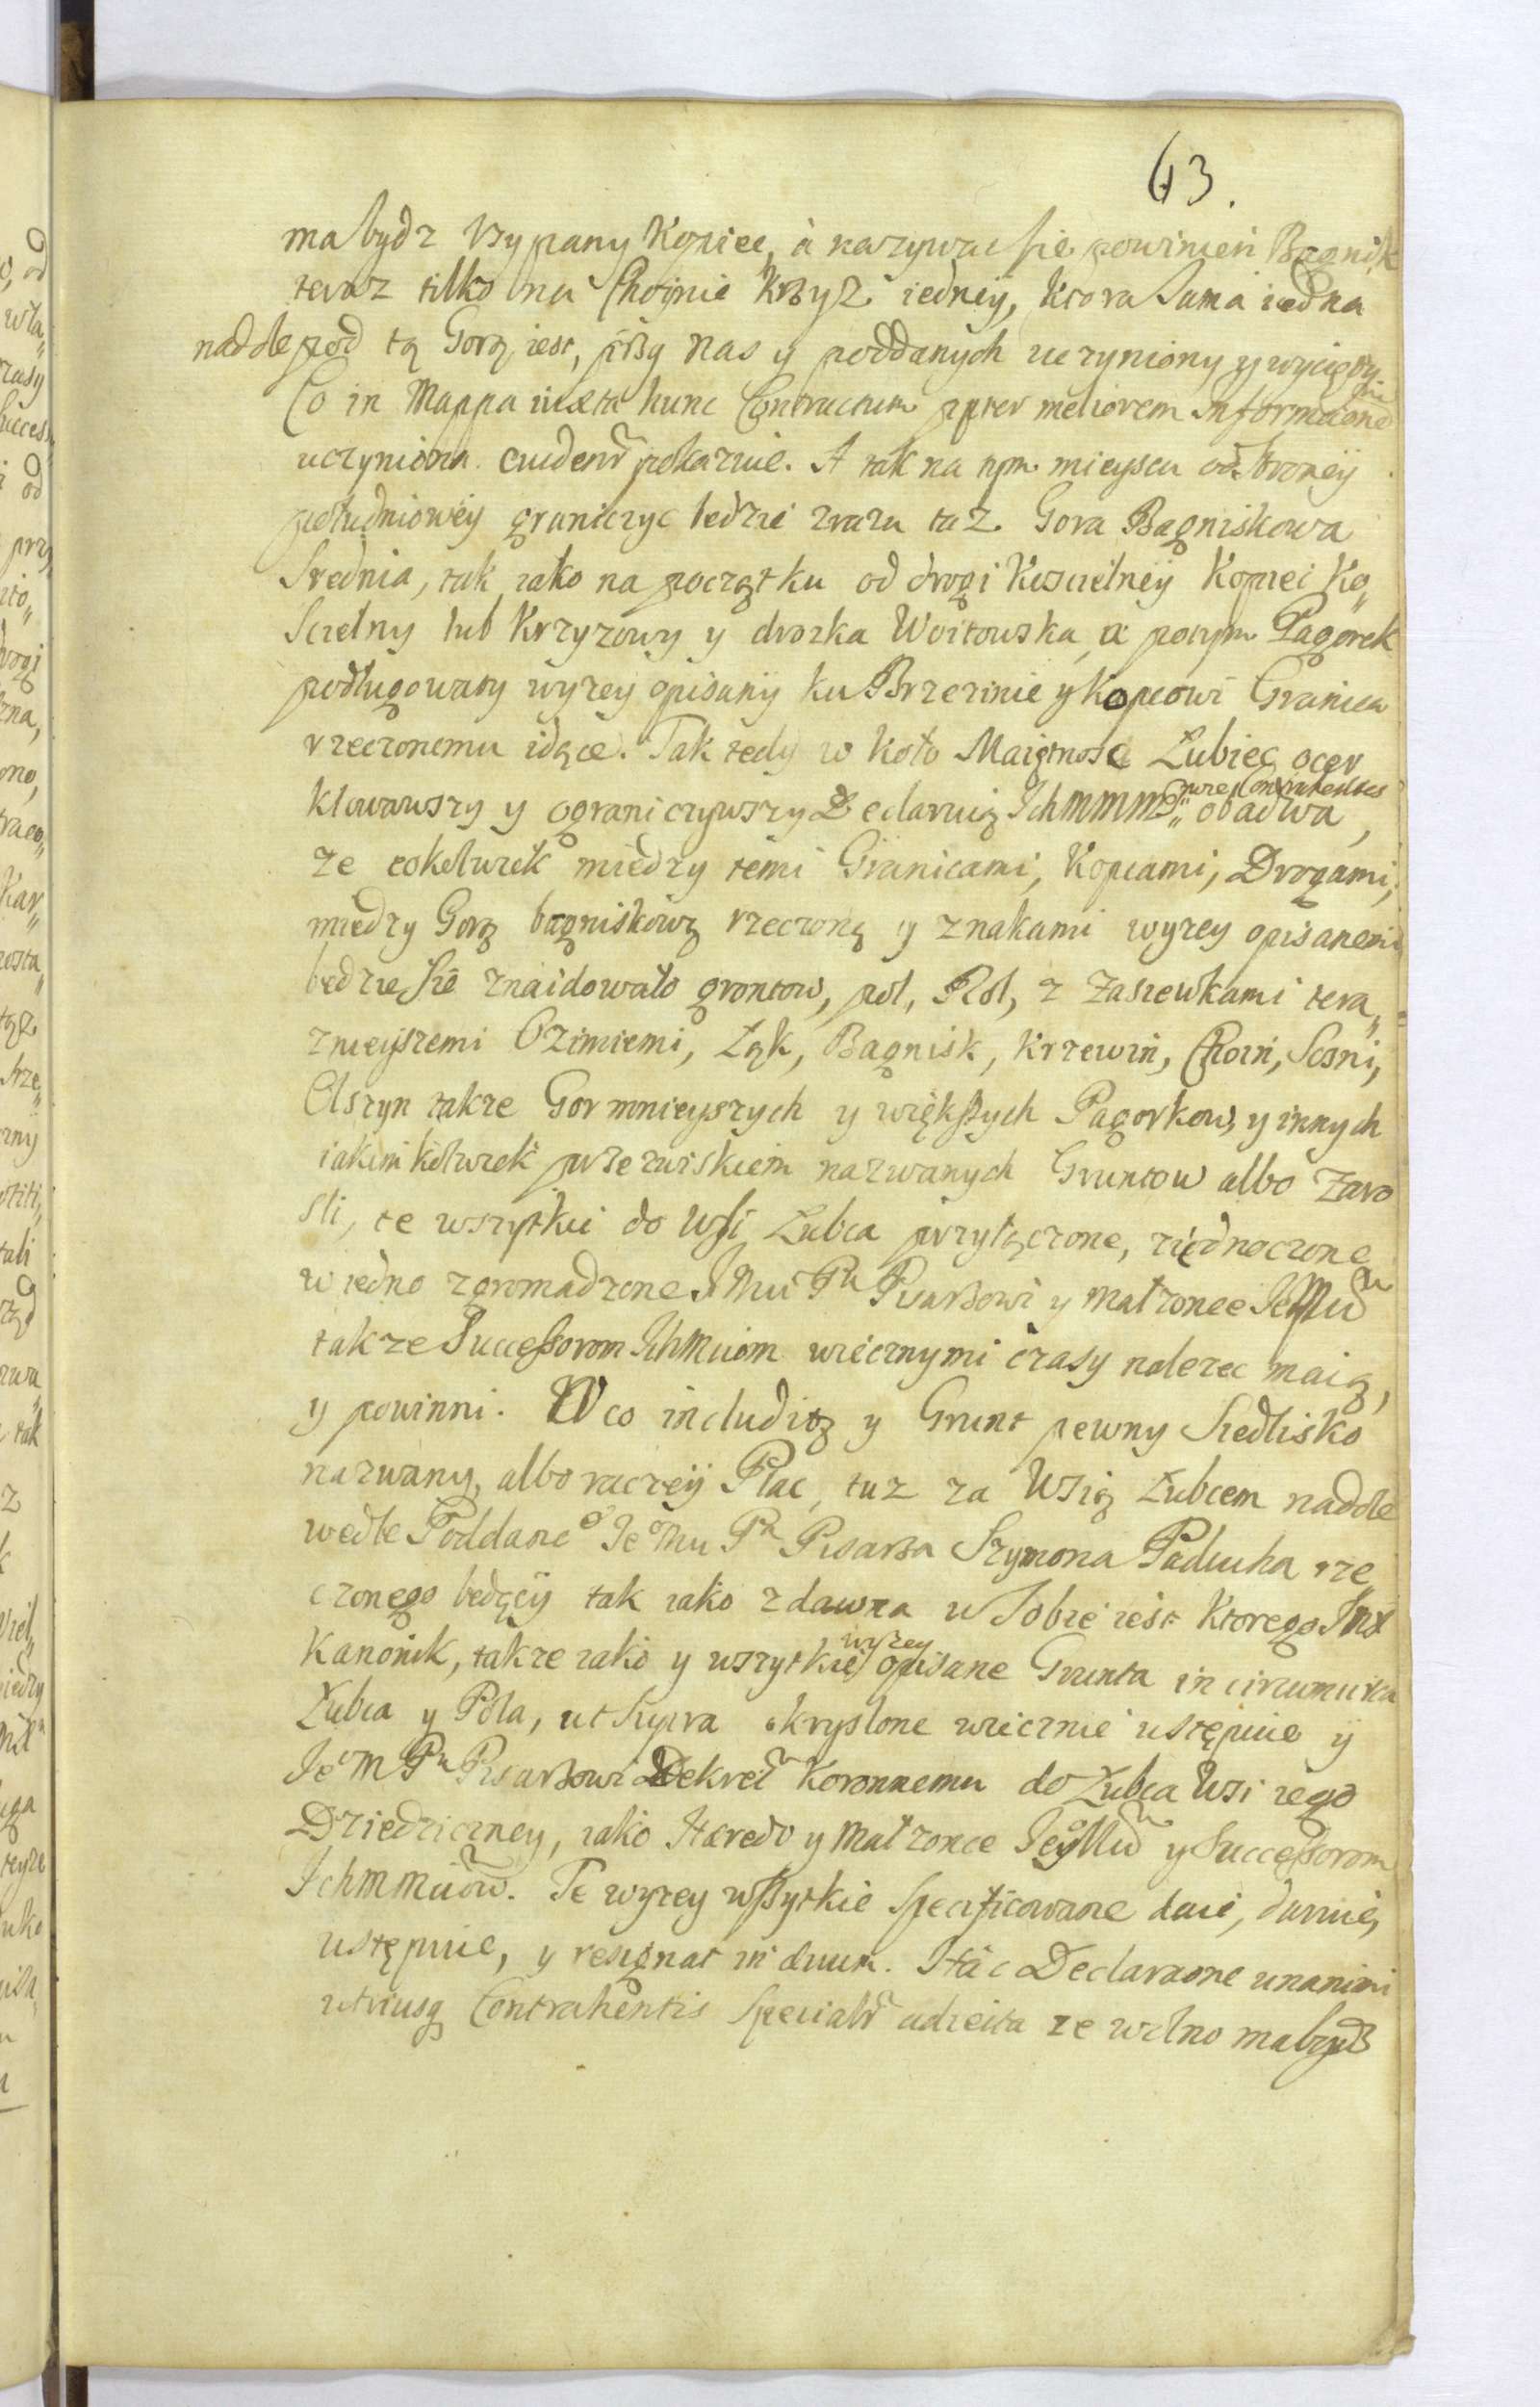 63.
ma bydz Vsypany Kopiec, á nazywac sie powinien Bagnik
teraz tilko na Choynie krzyz iedneÿ, ktora sama iedna
nadole pod tą Gorą iest, przy nas y poddanych uczyniony y wycięty
Co in Mappa iuxta hunc Contractum propter meliorem Informaonem
uczyniona evidenr pokazuie. A tak na tym mieyscu od stroneÿ
południoweÿ graniczyc bedzie zrazu taz Gora Bagniskowa
Srednia, tak iako na początku od drogi Koscielneÿ Kopiec Ko„
Scielny lub Krzyzowy y drozka Woitowska, a potym Pagorek
podługowaty wyzeÿ opisany ku Brzezinie y Kopcowi Granica
rzeczonemu idące. Tak tedy w koło Maiętnosc Łubiec ocer
klowawszy y ograniczywszy Declaruią Ichmmm obadwa,
pres Contrahentes
ze cokolwiek między temi Granicami, Kopcami, Drogami,
miedzy Gorą bagniskową rzeczoną y znakami wyzey opisanemi
bedzie sie znaidowało grontow, pol, Rol, z Zasiewkami tera„
znieyszemi Oziemiemi, Łąk, Bagnisk, krzewin, Choin, Sosni,
Olszyn, takze Gor mnieyszych y większych Pagorkow, y innych
iakimkolwiek przezwiskiem nazwanych Gruntow albo Zaro
sli, te wszytkie do Wsi Łubca przyłączone, ziednoczone
w iedno zgromadzone JMu Pu Pisarzowi y małzonce JeyMu
takze Successorom Ichmciom wiecznymi czasy nalezec maią,
y powinni. W co includitq y Grunt pewny Siedlisko
nazwany, albo raczeÿ Plac, tuz za Wsią Łubcem nadole
wedle Poddaneo JeoMu Pa Pisarza Szymona Paducha rze„
czonego bedąceÿ tak iako zdawna w Sobie iest ktorego JmX
Kanonik, takze iako y wszytkie wyzey opisane Grunta in circumvicin
Łubca y Pola, ut supra okryslone wiecznie ustępuie ÿ
JeoM Pu Pisarzowi Dekret Koronnemu do Łubca Wsi iego
Dziedziczney, iako Hæredo y małzonce JeyMu y Successorom
Ichmmciow. Te wyzey wszytkie specificowane daie, daruie,
ustępuie, y resignat in ævum. Hac Declaraone unanimi
utriusq Contrahentis specialr adiecta ze wolno ma bydz